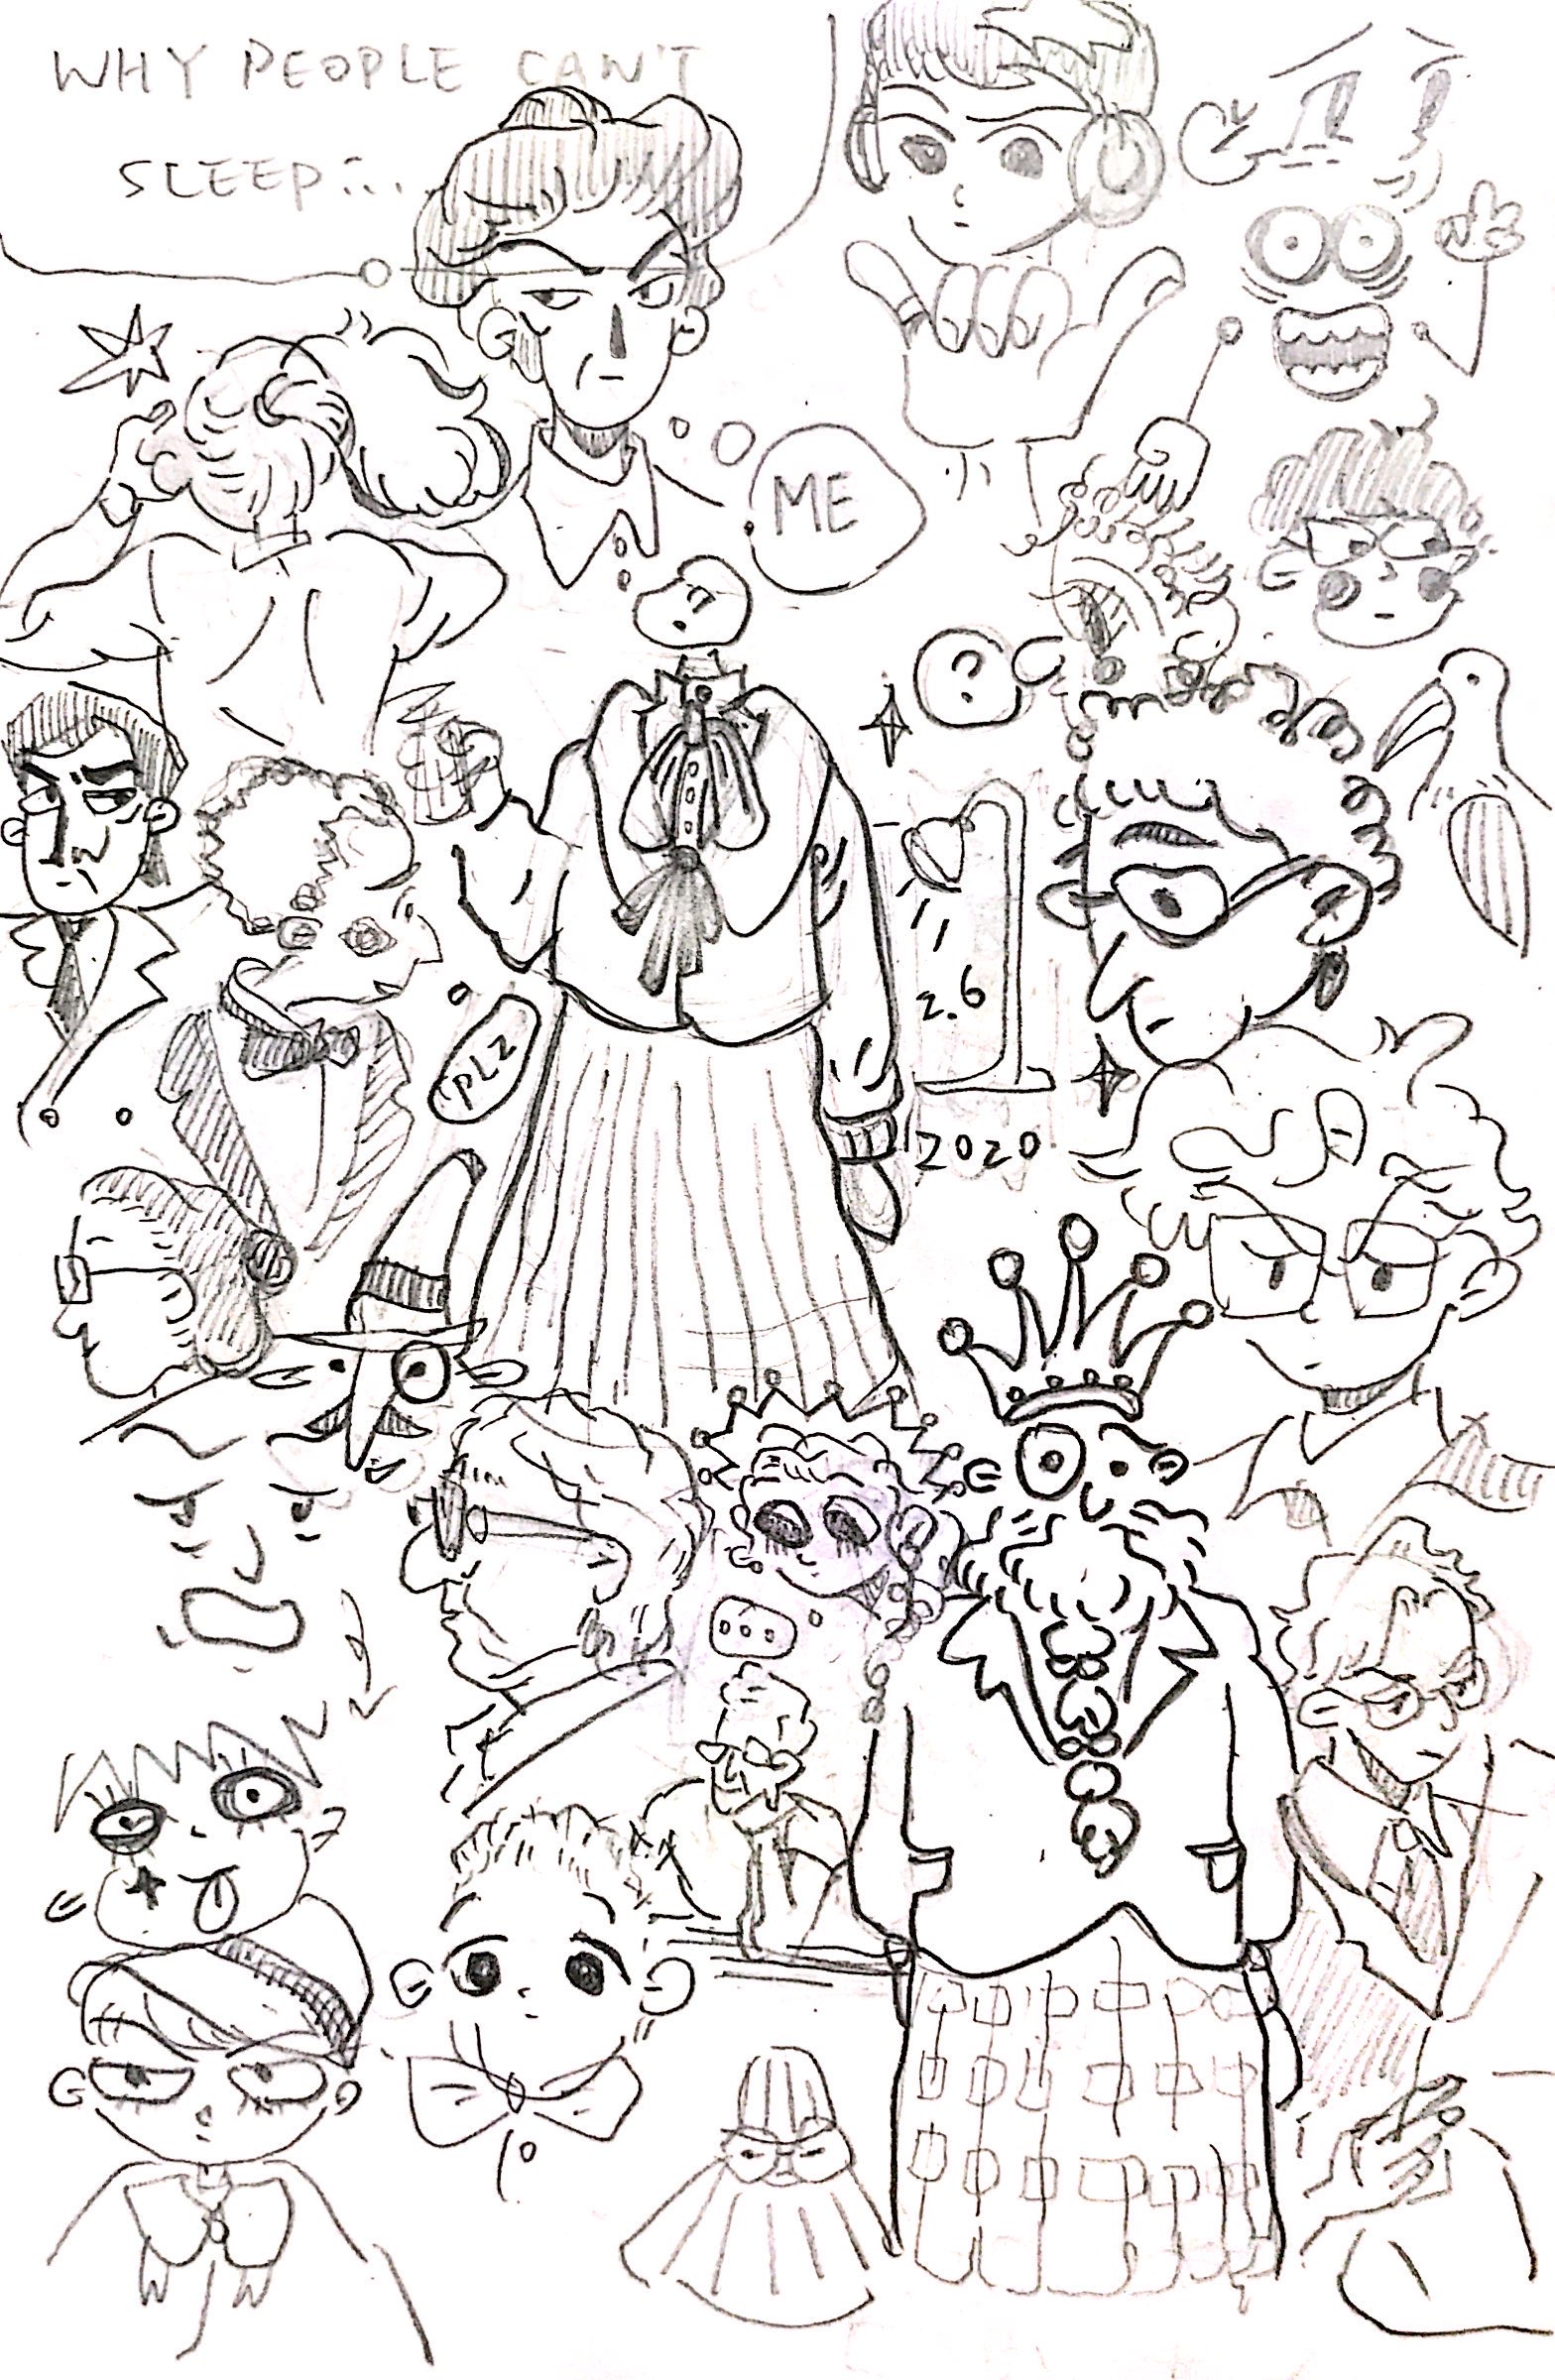 WHY PEOPLE CAN'T
SLEEP...
ME
?
?
2.6
PLZ
2020
...